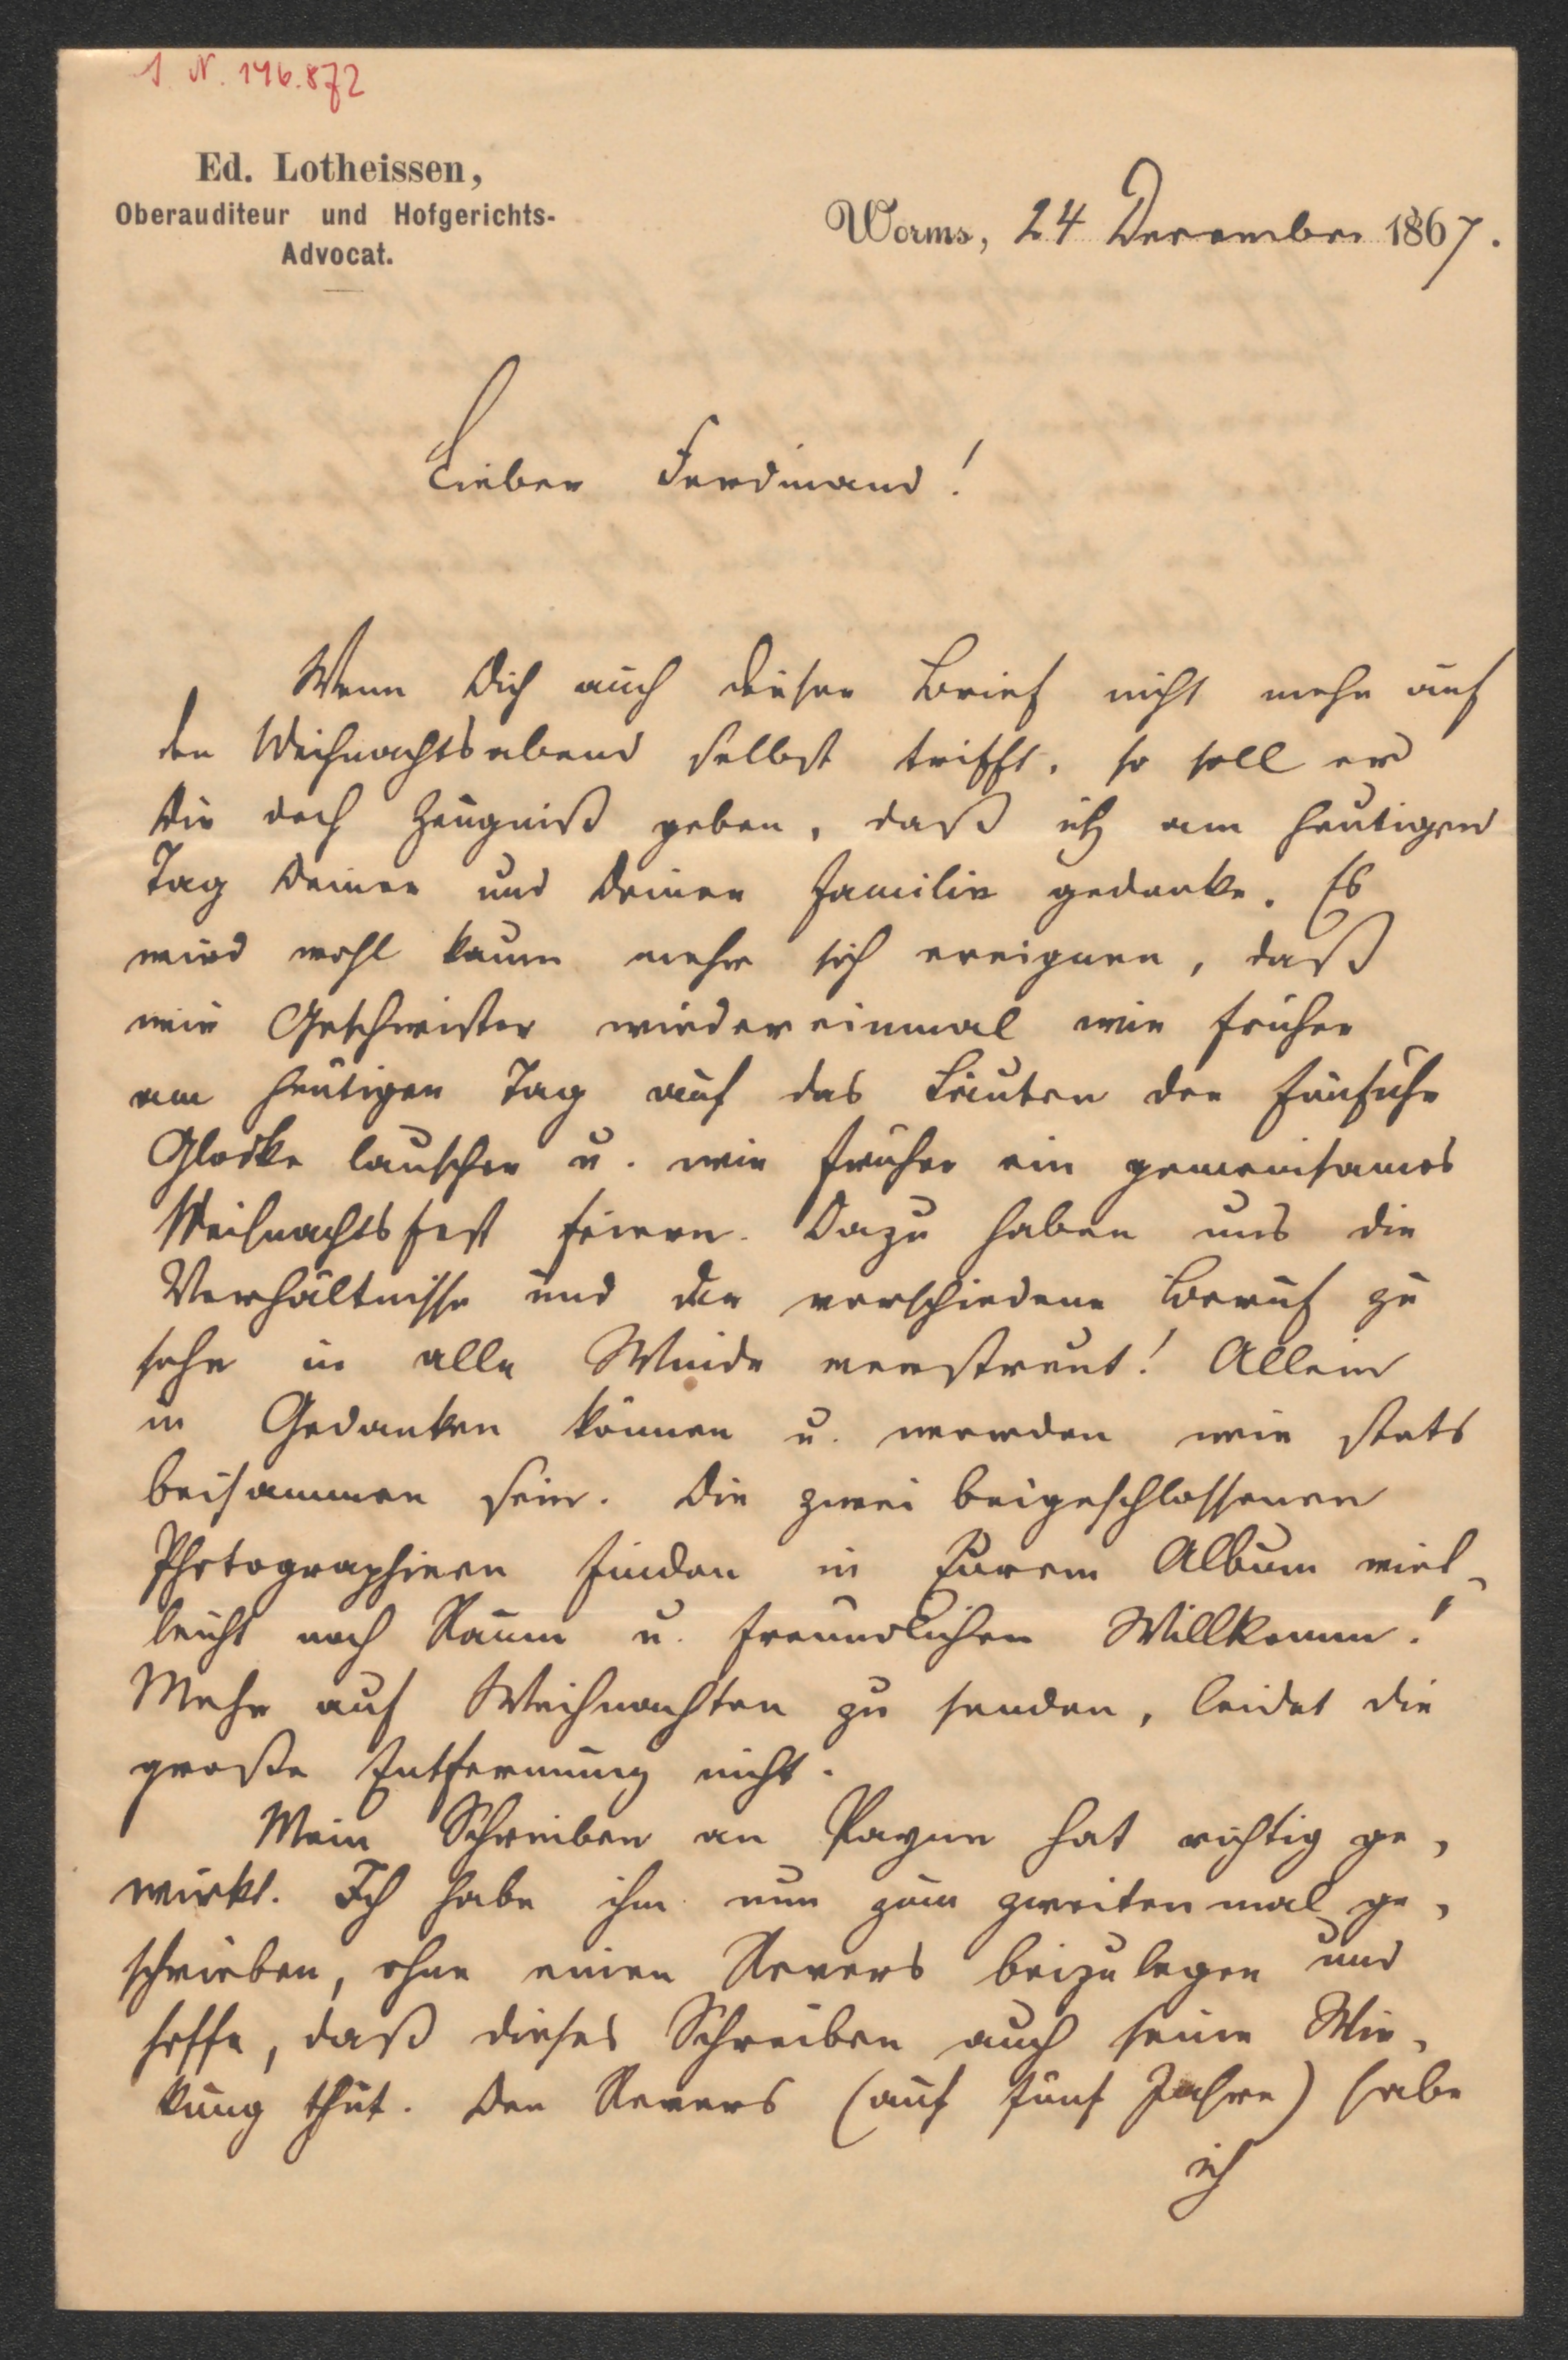 I. N. 146.872
Ed. Lotheissen,
Oberauditeur und Hofgerichts-
Advocat.
Worms, 24 December 1867.
Lieber Ferdinand!
Wenn Dich auch dieser Brief nicht mehr auf
den Weihnachtsabend selbst trifft, so soll er
Dir doch Zeugniß geben, daß ich am heutigen
Tag Deiner und Deiner Familie gedenke. Es
wird wohl kaum mehr sich ereignen, daß
wir Geschwister wieder einmal wie früher
am heutigen Tag auf das Läuten der Fünfuhr
Glocke lauschen u. wie früher ein gemeinsames
Weihnachtsfest feiern. Dazu haben uns die
Verhältnisse und der verschiedene Beruf zu
sehr in alle Winde verstreut! Allein
in Gedanken können u. werden wir stets
beisammen sein. Die zwei beigeschlossenen
Photographieen finden in Eurem Album viel-
leicht noch Raum u. freundlichen Willkomm!
Mehr auf Weihnachten zu senden, leidet die
große Entfernung nicht.
Mein Schreiben an Payne hat richtig ge-
wirkt. Ich habe ihm nun zum zweiten mal ge-
schrieben, ohne einen Revers beizulegen und
hoffe, daß dieses Schreiben auch seine Wir-
kung thut. Den Revers (auf fünf Jahre) habe
ich